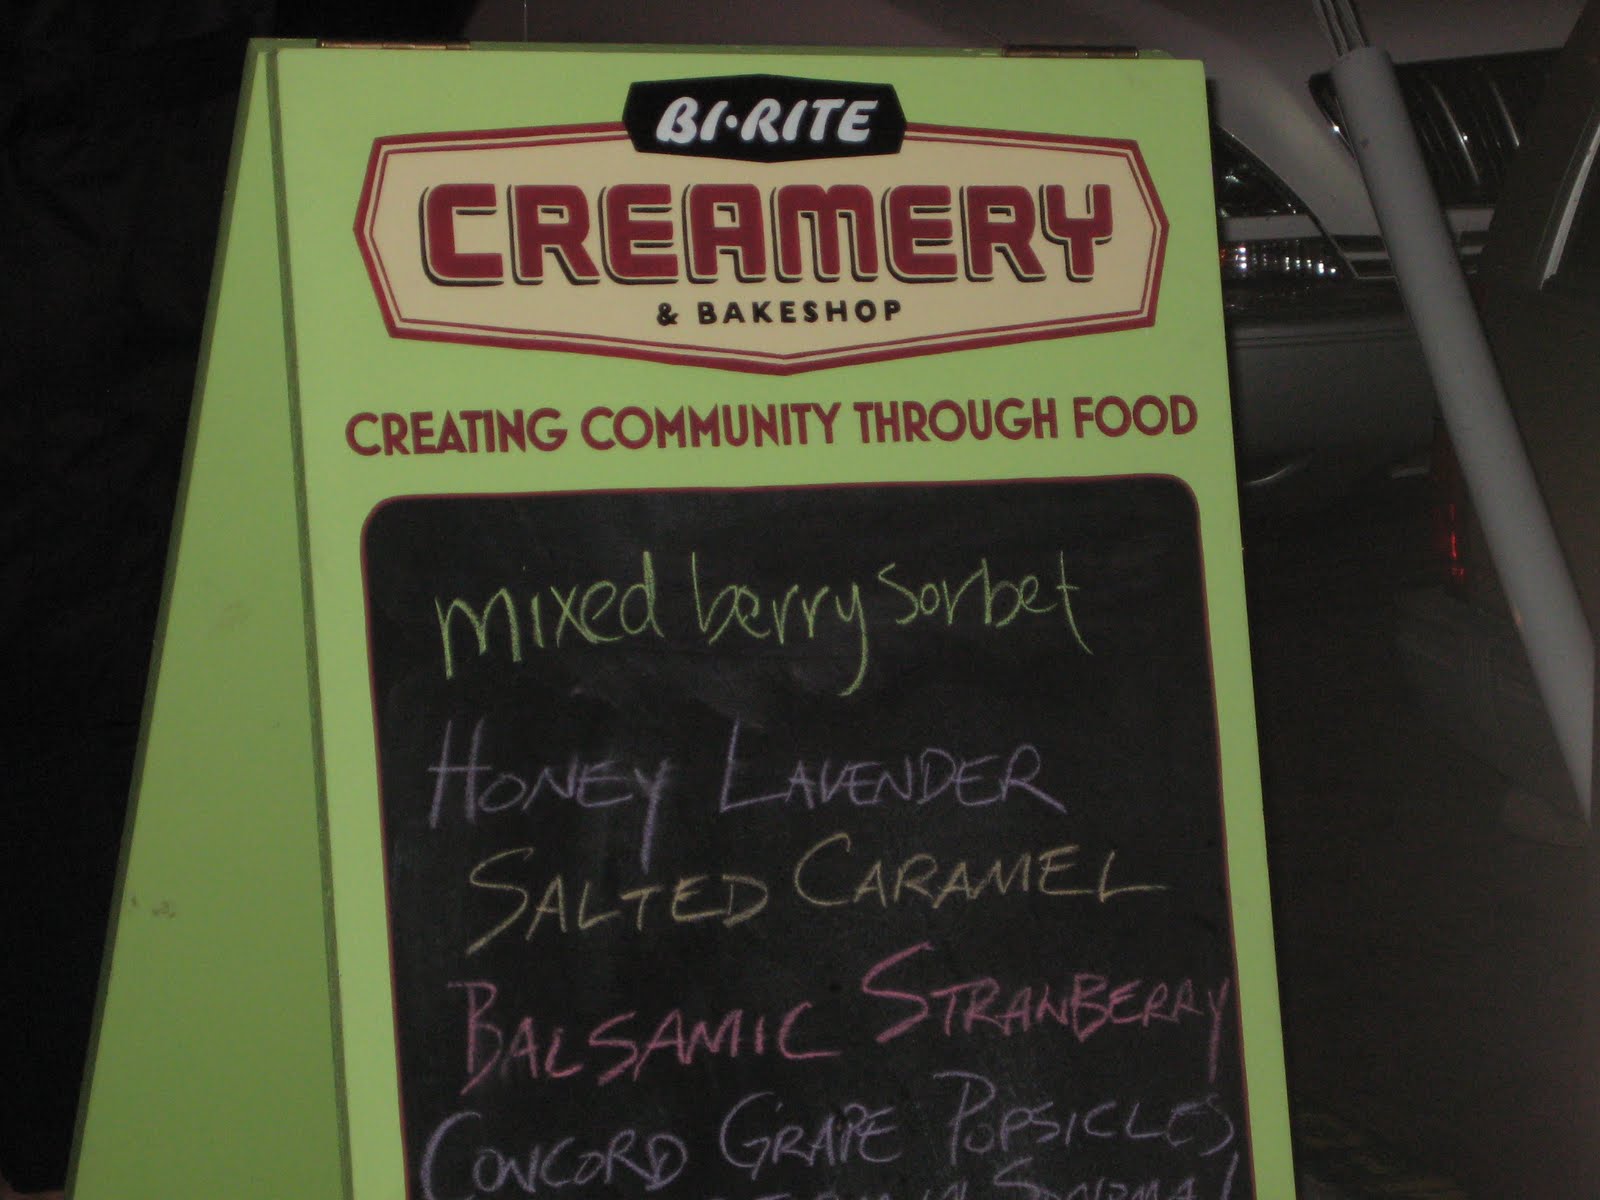 BI-RITE
CREAMERY
& BAKESHOP
CREATING COMMUNITY THROUGH FOOD
mixed berry sorbet
HONEY LAVENDER
SALTED CARAMEL
BALSAMIC STRAWBERRY
CONCORD GRAPE POPSICLES